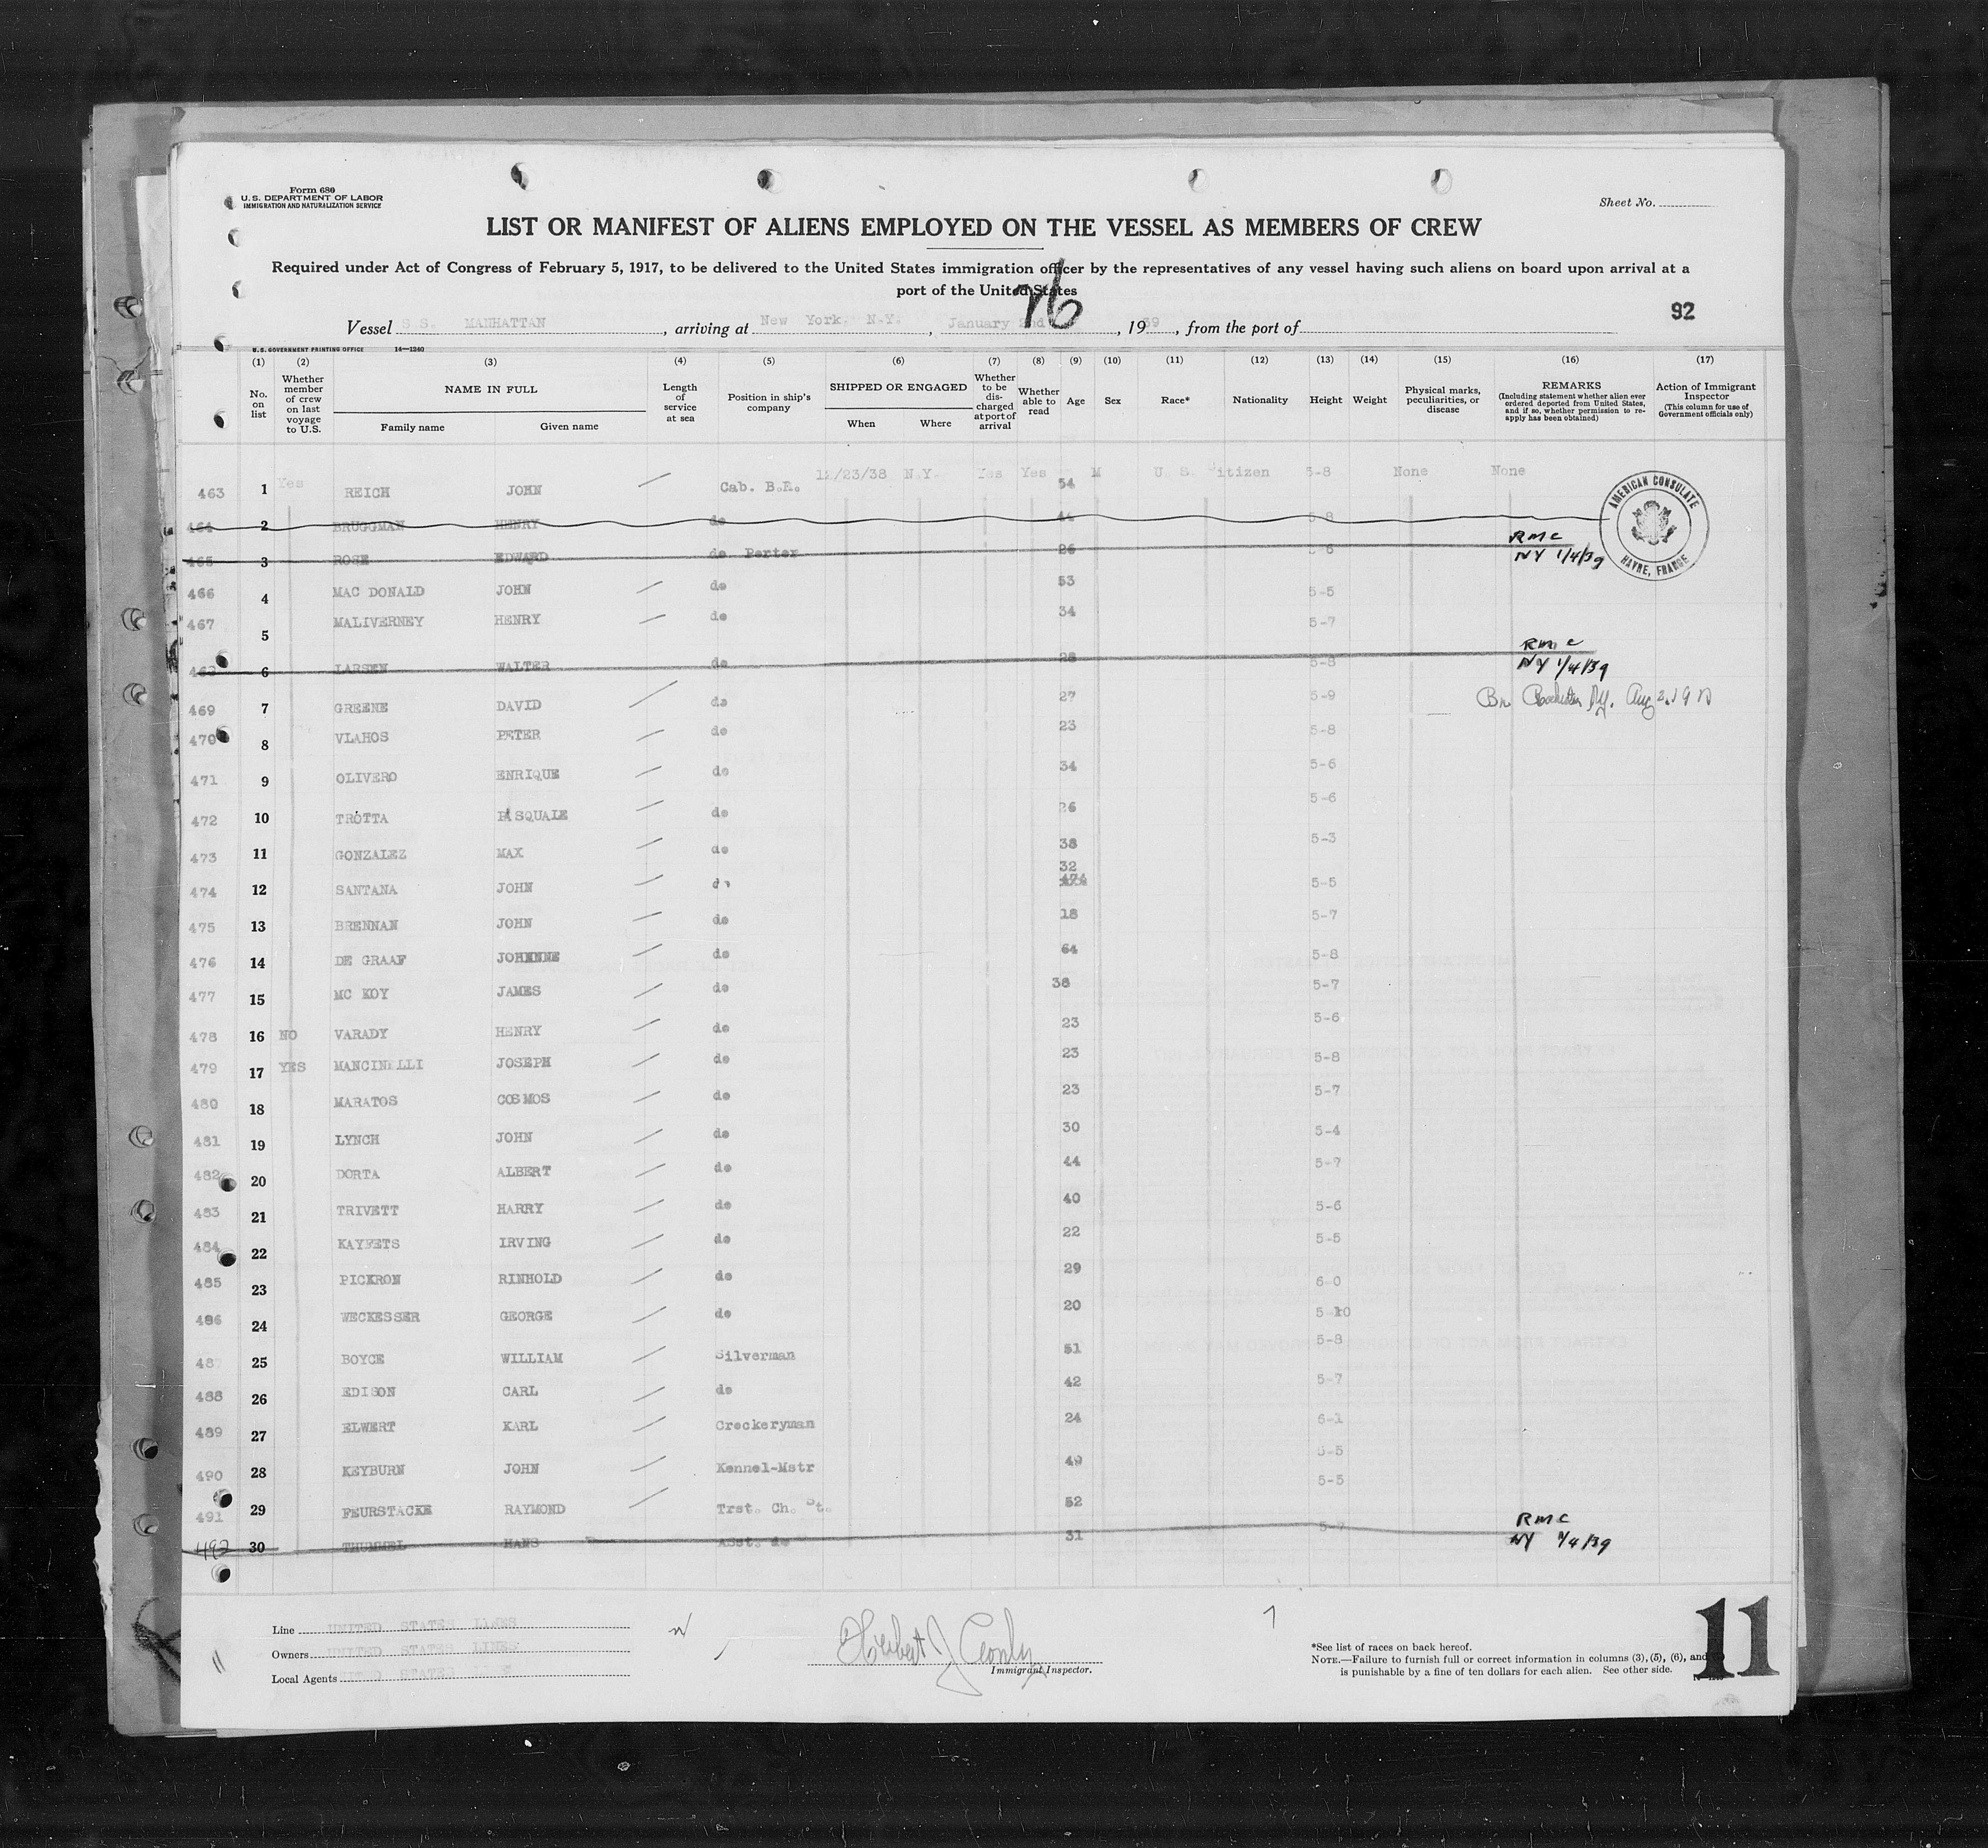 Form 680
U. S. DEPARTMENT OF LABOR
IMMIGRATION AND NATURALIZATION SERVICE
Sheet No.
LIST OR MANIFEST OF ALIENS EMPLOYED ON THE VESSEL AS MEMBERS OF CREW
Required under Act of Congress of February 5, 1917, to be delivered to the United States immigration officer by the representatives of any vessel having such aliens on board upon arrival at a
port of the United States
76
92
Vessel S.S. MANHATTAN, arriving at New York. N.Y., January 2nd, 1939, from the port of
U. S. GOVERNMENT PRINTING OFFICE 14—1240
(1) (2) (3) (4) (5) (6) (7) (8) (9) (10) (11) (12) (13) (14) (15) (16) (17)
No. on list
Whether member of crew on last voyage to U.S.
NAME IN FULL
Family name Given name
Length of service at sea
Position in ship's company
SHIPPED OR ENGAGED
When Where
Whether to be discharged at port of arrival
Whether able to read
Age
Sex
Race*
Nationality
Height
Weight
Physical marks, peculiarities, or disease
REMARKS
(Including statement whether alien ever ordered deported from United States, and if so, whether permission to reapply has been obtained)
Action of Immigrant Inspector
(This column for use of Government officials only)
463 1 Yes REICH JOHN Cab. B.R. 12/23/38 N.Y. Yes Yes 54 M U. S. Citizen 5-8 None None
AMERICAN CONSULATE
HAVRE, FRANCE
464 2 BRUGGMAN HENRY do 44 5-8
465 3 ROSE EDWARD do Porter 26 5-6 RMC NY 1/4/39
466 4 MAC DONALD JOHN do 53 5-5
467 5 MALIVERNEY HENRY do 34 5-7
468 6 LARSEN WALTER do 28 5-8 RMC NY 1/4/39
469 7 GREENE DAVID do 27 5-9 Bn Rochester NY. Aug 2.19
470 8 VLAHOS PETER do 23 5-8
471 9 OLIVERO ENRIQUE do 34 5-6
472 10 TROTTA PASQUALE do 26 5-6
473 11 GONZALEZ MAX do 38 5-3
474 12 SANTANA JOHN do 32 5-5
475 13 BRENNAN JOHN do 18 5-7
476 14 DE GRAAF JOHNNNE do 64 5-8
477 15 MC KOY JAMES do 38 5-7
478 16 NO VARADY HENRY do 23 5-6
479 17 YES MANCINELLI JOSEPH do 23 5-8
480 18 MARATOS COSMOS do 23 5-7
481 19 LYNCH JOHN do 30 5-4
482 20 DORTA ALBERT do 44 5-7
483 21 TRIVETT HARRY do 40 5-6
484 22 KAYFETS IRVING do 22 5-5
485 23 PICKRON RINHOLD do 29 6-0
486 24 WECKESSER GEORGE do 20 5-10
487 25 BOYCE WILLIAM Silverman 51 5-8
488 26 EDISON CARL do 42 5-7
489 27 ELWERT KARL Crockeryman 24 6-1
490 28 KEYBURN JOHN Kennel-Mstr 49 5-5
491 29 FEURSTACKE RAYMOND Trst. Ch. St. 52 5-5
492 30 THUMMEL HANS Asst. do 31 5-7 RMC NY 1/4/39
Line UNITED STATES LINES
Owners UNITED STATES LINES
Local Agents UNITED STATES
Immigrant Inspector.
*See list of races on back hereof.
NOTE.—Failure to furnish full or correct information in columns (3), (5), (6), and
is punishable by a fine of ten dollars for each alien. See other side.
11